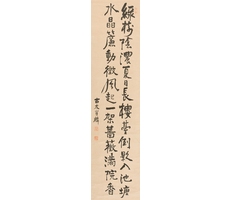 綠樹陰濃夏日長樓臺倒影入池塘
水晶簾動微風起一架薔薇滿院香